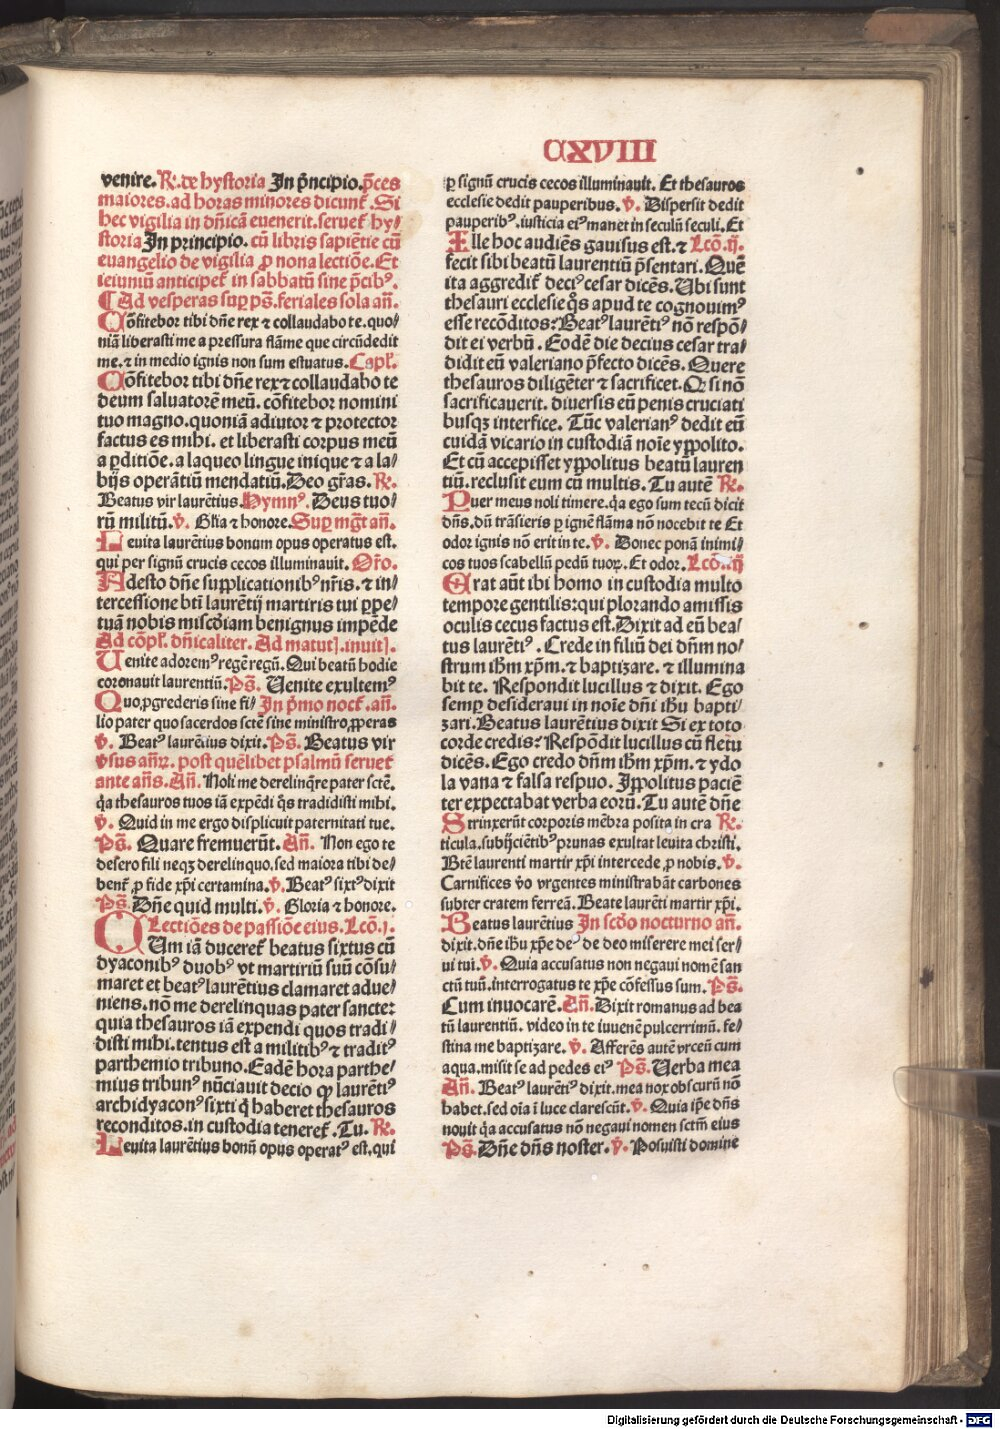 CXVIII
venire. R. de hystoria In p̄ncipio. p̄ces
maiores. ad horas minores dicunt᷑. Si
hec vigilia in dn̄icā euenerit. seruet᷑ hy⸗
storia In principio. cū libris sapiētie cū
euangelio de vigilia ꝓ nona lectiōe. Et
ieiuniū anticipet᷑ in sabbatū sine p̄cibꝰ.
¶ Ad vesperas suꝑ pš. feriales sola añ.
Cōfitebor tibi dn̄e rex ⁊ collaudabo te. quo⸗
niā liberasti me a pressura flāme que circūdedit
me. ⁊ in medio ignis non sum estuatus. Capl᷑.
Cōfitebor tibi dn̄e rex ⁊ collaudabo te
deum saluatorē meū. cōfitebor nomini
tuo magno. quoniā adiutor ⁊ protector
factus es mihi. et liberasti corpus meū
a ꝑditiōe. a laqueo lingue inique ⁊ a la⸗
bijs operātiū mendatiū. Deo gr̄as. R.
Beatus vir laurētius. Hymnꝰ. Deus tuo⸗
rū militū. v̄. Glīa ⁊ honore. Suꝑ mḡt añ.
Leuita laurētius bonum opus operatus est.
qui per signū crucis cecos illuminauit. Or̄o.
Adesto dn̄e supplicationibꝰ nr̄is. ⁊ in⸗
tercessione btī laurētij martiris tui ꝑpe⸗
tuā nobis mīscdiam benignus impēde
Ad cōpl᷑. dn̄icaliter. Ad matut. inuit.
Venite adoremꝰ regē regū. Qui beatū hodie
coronauit laurentiū. Pš. Venite exultemꝰ
Quo ꝓgrederis sine fi⸗ In p̄mo noct᷑. añ.
lio pater quo sacerdos sctē sine ministro ꝓperas
v̄. Beatꝰ laurētius dixit. Pš. Beatus vir
v̄sus añꝝ. post quēlibet psalmū seruet᷑
ante añs. Añ. Noli me derelinq̄re pater sctē.
q̄a thesauros tuos iā expēdi q̄s tradidisti mihi.
v̄. Quid in me ergo displicuit paternitati tue.
Pš. Quare fremuerūt. Añ. Non ego te
desero fili neqꝫ derelinquo. sed maiora tibi de⸗
bent᷑ ꝓ fide xp̄i certamina. v̄. Beatꝰ sixtꝰ dixit
Pš. Dn̄e quid multi. v̄. Gloria ⁊ honore.
Lectiōes de passiōe eius. Lcō. j.
QVm iā duceret᷑ beatus sixtus cū
dyaconibꝰ duobꝰ vt martiriū suū cōsu⸗
maret et beatꝰ laurētius clamaret adue⸗
niens. nō me derelinquas pater sancte:
quia thesauros iā expendi quos tradi⸗
disti mihi. tentus est a militibꝰ ⁊ traditꝰ
parthemio tribuno. Eadē hora parthe⸗
mius tribunꝰ nūciauit decio ꝙ laurētiꝰ
archidyaconꝰ sixti q̄ haberet thesauros
reconditos. in custodia teneret᷑. Tu. R.
Leuita laurētius bonū opus operatꝰ est. qui
ꝑ signū crucis cecos illuminauit. Et thesauros
ecclesie dedit pauperibus. v̄. Dispersit dedit
pauperibꝰ. iusticia eiꝰ manet in seculū seculi. Et
Ille hoc audiēs gauisus est. ⁊ Lcō. ij.
fecit sibi beatū laurentiū p̄sentari. Quē
ita aggredit᷑ deciꝰ cesar dicēs. Ubi sunt
thesauri ecclesie q̄s apud te cognouimꝰ
esse recōditos: Beatꝰ laurētiꝰ nō respō⸗
dit ei verbū. Eodē die decius cesar tra⸗
didit eū valeriano p̄fecto dicēs. Quere
thesauros diligēter ⁊ sacrificet. Ꝙ si nō
sacrificauerit. diuersis eū penis cruciati
busqꝫ interfice. Tūc valerianꝰ dedit eū
cuidā vicario in custodiā noīe yppolito.
Et cū accepisset yppolitus beatū lauren
tiū. reclusit eum cū multis. Tu autē R.
Puer meus noli timere. q̄a ego sum tecū dicit
dn̄s. dū trāsieris ꝑ ignē flāma nō nocebit te Et
odor ignis nō erit in te. v̄. Donec ponā inimi⸗
cos tuos scabellū pedū tuoꝝ. Et odor. Lcō. iij
Erat aūt ibi homo in custodia multo
tempore gentilis: qui plorando amissis
oculis cecus factus est. Dixit ad eū bea⸗
tus laurētiꝰ. Crede in filiū dei dn̄m no⸗
strum ihm̄ xp̄m. ⁊ baptizare. ⁊ illumina
bit te. Respondit lucillus ⁊ dixit. Ego
semꝑ desideraui in noīe dn̄i ihū bapti⸗
zari. Beatus laurētius dixit Si ex toto
corde credis: Respōdit lucillus cū fletu
dicēs. Ego credo dn̄m ihm̄ xp̄m. ⁊ ydo
la vana ⁊ falsa respuo. Ippolitus paciē
ter expectabat verba eorū. Tu autē dn̄e
Strinxerūt corporis mēbra posita in cra R.
ticula. subijciētibꝰ prunas exultat leuita christi.
Btē laurenti martir xp̄i intercede ꝓ nobis. v̄.
Carnifices v̄o vrgentes ministrabāt carbones
subter cratem ferreā. Beate laurēti martir xp̄i.
Beatus laurētius In sc̄do nocturno añ.
dixit. dn̄e ihū xp̄e deꝰ de deo miserere mei ser⸗
ui tui. v̄. Quia accusatus non negaui nomē san
ctū tuū. interrogatus te xp̄e cōfessus sum. Pš.
Cum inuocarē. Añ. Dixit romanus ad bea
tū laurentiū. video in te iuuenē pulcerrimū. fe⸗
stina me baptizare. v̄. Afferēs autē vrceū cum
aqua. misit se ad pedes eiꝰ Pš. Verba mea
Añ. Beatꝰ laurētiꝰ dixit. mea nox obscurū nō
habet. sed oīa ī luce clarescūt. v̄. Quia ip̄e dn̄s
nouit q̄a accusatus nō negaui nomen sctm̄ eius
Pš. Dn̄e dn̄s noster. v̄. Posuisti domine
Digitalisierung gefördert durch die Deutsche Forschungsgemeinschaft - DFG